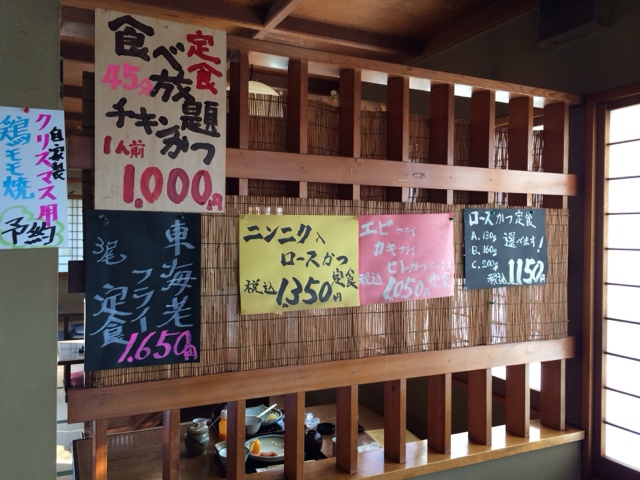 自家製
クリスマス用
鶏モモ焼
予約
定食
食べ放題
45分
チキンかつ
1人前
1,000円
東海老
フライ
定食
1,650円
ニンニク入
ロースかつ
定食
税込
1,350円
エビフライ
カキフライ
ヒレかつ
定食
税込
1,050円
ロースかつ定食
A. 130g
B. 160g
C. 200g
選べます!
税込
1150円